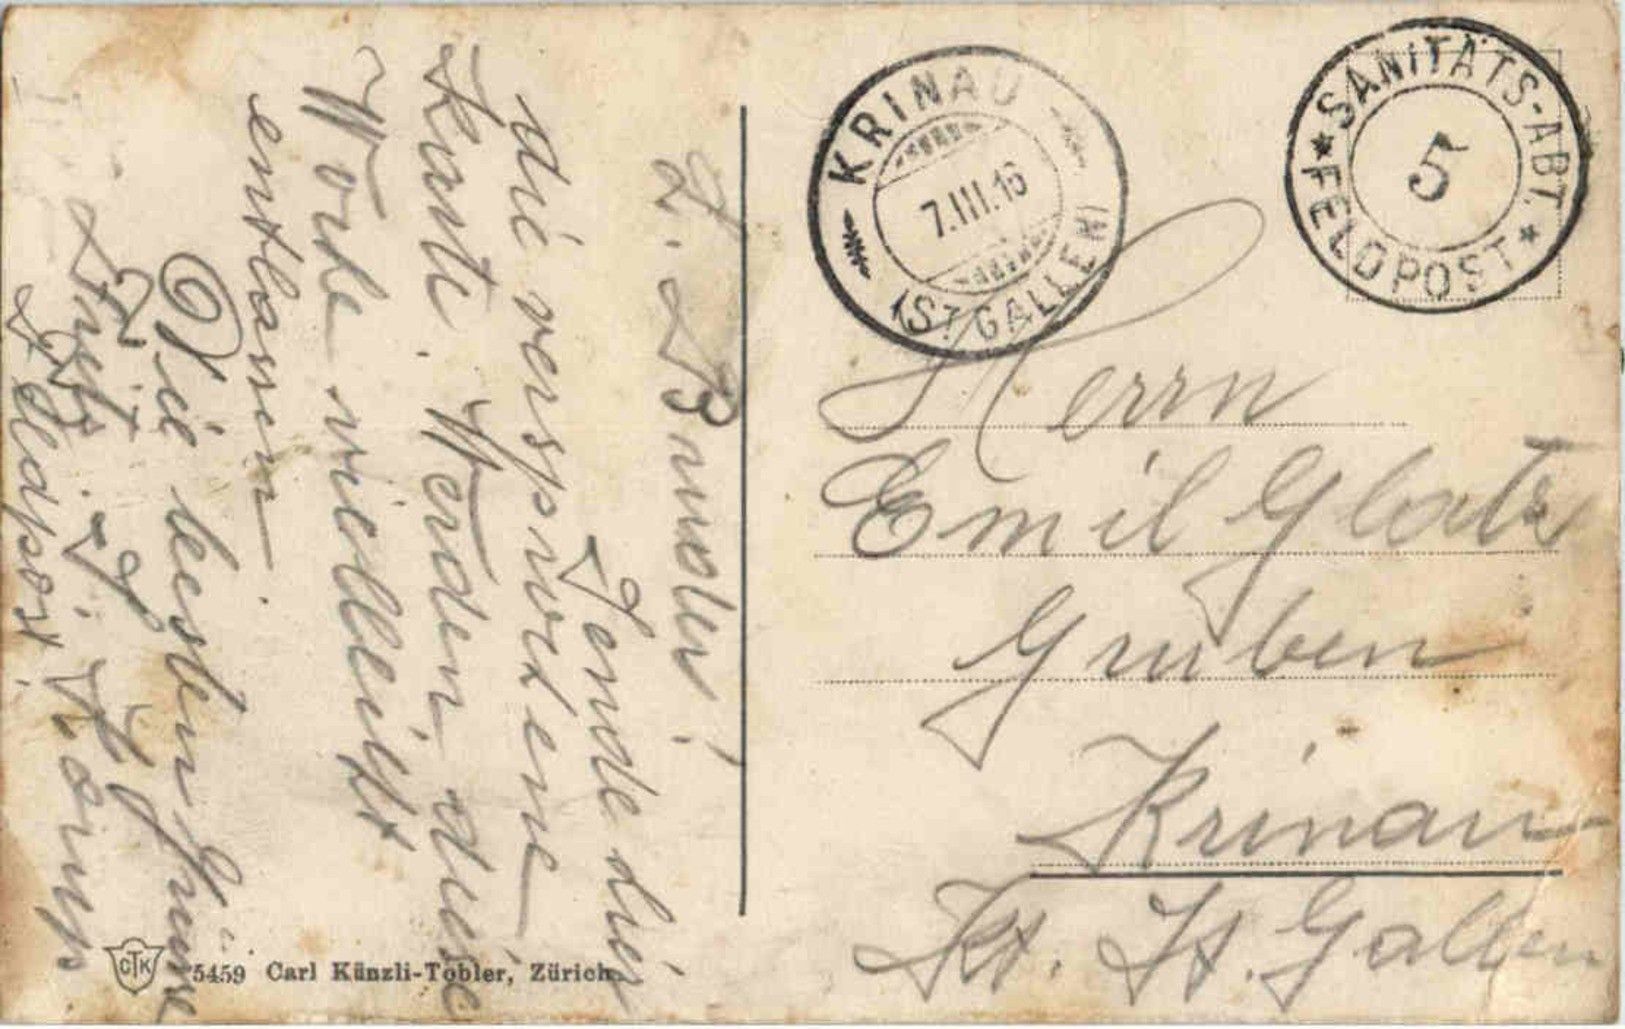 L. Bruder!
Sende dir
die versprochene
Karte. Werden diese
Woche vielleicht
entlassen.
Die besten Grüsse
Feldpost.
5459 Carl Künzli-Tobler, Zürich.
CTK
KRINAU
7.III.16
(ST. GALLEN)
SANITÄTS-ABT.
5
FELDPOST
Herrn
Emil Glatz
Gruben
Krinau
Kt. St. Gallen